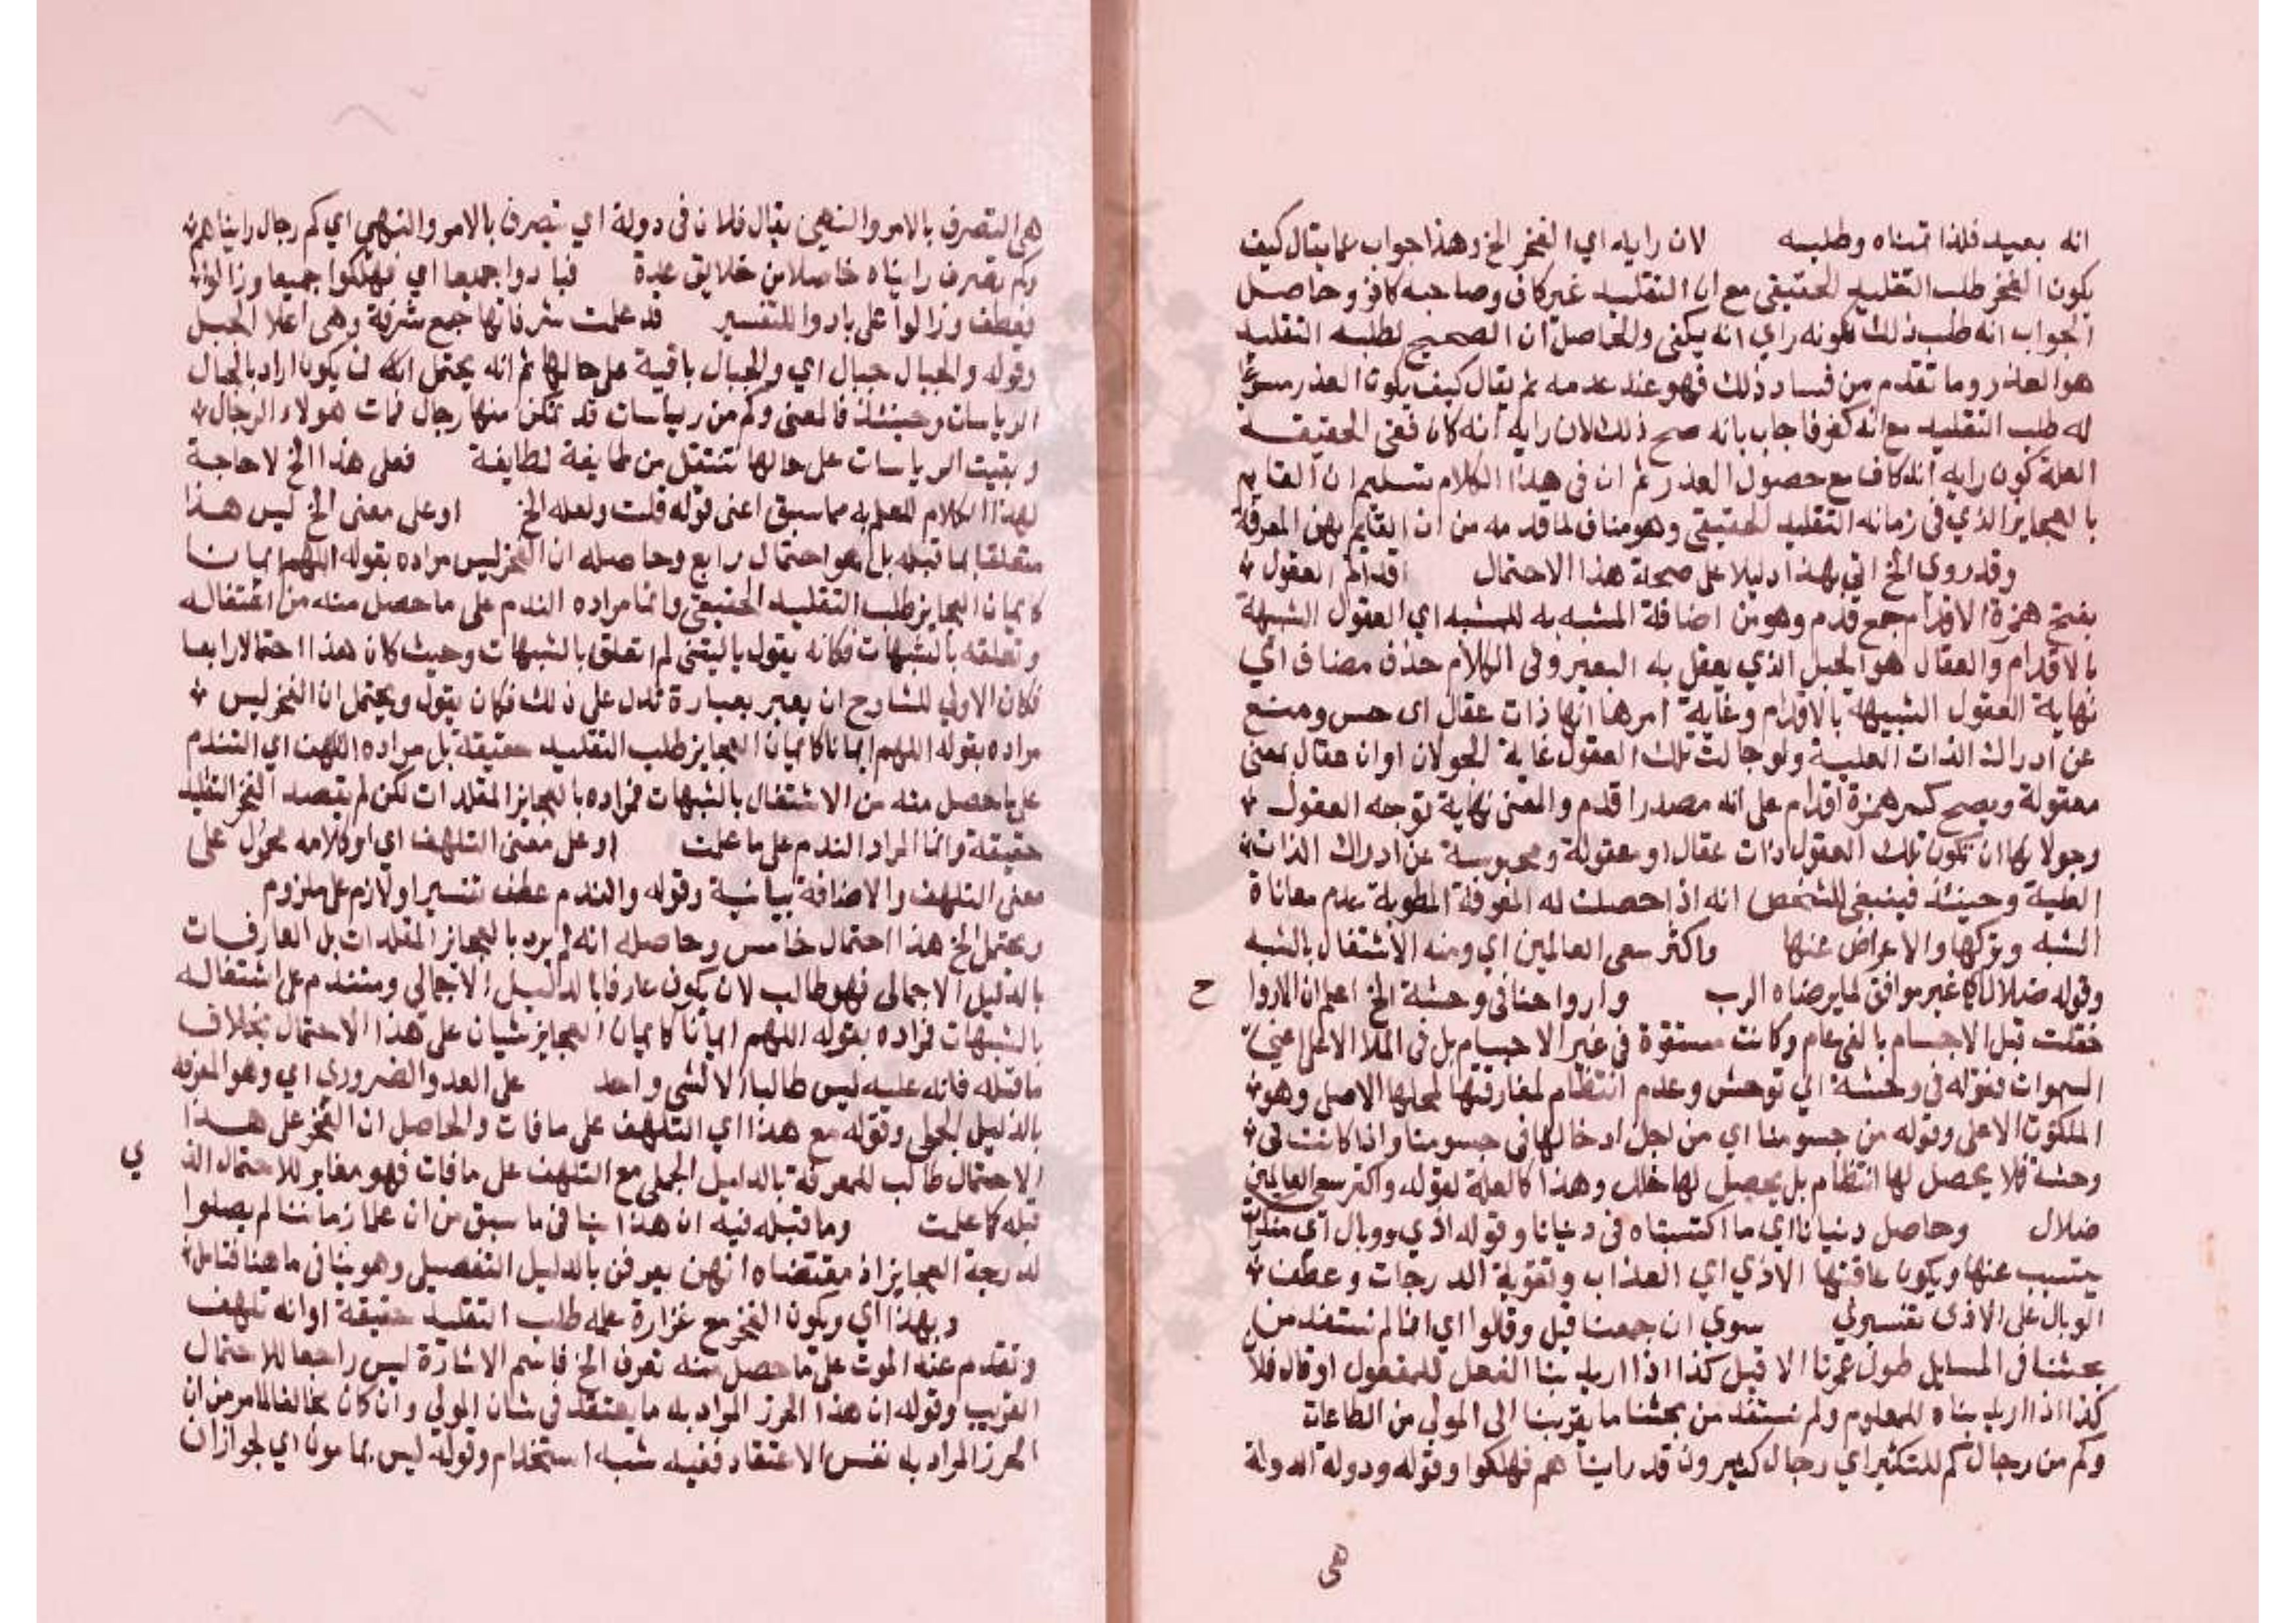 انه بعيد فلذا تمناه وطلبه لان رايه اي الفخر الخ وهذا جواب عما يقال كيف
يكون الفخر طلب التقليد الحقيقي مع ان التقليد غير كاف وصاحبه كافر وحاصل
الجواب انه طلب ذلك لكونه راي انه يكفي والحاصل ان الصحيح لطلبه التقليد
هو العذر وما تقدم من فساد ذلك فهو عند عدمه ثم يقال كيف يكون العذر مسوغا
له طلب التقليد مع انه كفر فاجاب بانه صح ذلك لان رايه انه كان ففي الحقيقة
العلة كون رايه انه كاف مع حصول العذر ثم ان في هذا الكلام تسليم ان القايم
بالعجايز الذي في زمانه التقليد الحقيقي وهو مناف لما قدمه من ان القايم بهن المعرفة
وقد روي الخ اتي بهذا دليلا على صحة هذا الاحتمال اقدام العقول
بفتح همزة الاقدام جمع قدم وهو من اضافة المشبه به للمشبه اي العقول الشبيهة
بالاقدام والعقال هو الحبل الذي يعقل به البعير وفي الكلام حذف مضاف اي
نهاية العقول الشبيهة بالاقدام وغاية امرها انها ذات عقال اى حبس ومنع
عن ادراك الذات العلية ولو جالت تلك العقول غاية الجولان او ان عقال بمعنى
معقولة ويصح كسر همزة اقدام على انه مصدر اقدم والمعنى نهاية توجه العقول
وجولانها ان تكون تلك العقول ذات عقال او معقولة ومحبوسة عن ادراك الذات
العلية وحينئذ فينبغي للشخص انه اذا حصلت له المعرفة المطلوبة عدم معاناة
الشبه وتركها والاعراض عنها واكثر سعي العالمين اي ومنه الاشتغال بالشبه
وقوله ضلال اي غير موافق لما يرضاه الرب وارواحنا في وحشة الخ اعلم ان الاروا ح
خلقت قبل الاجسام بالفي عام وكانت مستقرة في غير الاجسام بل في الملا الاعلى اعني
السموات فقوله في وحشة اي توحش وعدم انتظام لمفارقتها لمحلها الاصلي وهو
الملكوت الاعلى وقوله من جسومنا اي من اجل ادخالها في جسومنا واذا كانت في
وحشة فلا يحصل لها انتظام بل يحصل لها خلل وهذا كالعلة لقوله واكثر سعي العالمين
ضلال وحاصل دنيانا اي ما اكتسبناه في دنيانا وقوله اذي ووبال اي
يتسبب عنها ويكون عاقبتها الاذي اي العذاب وتفوية الدرجات وعطف
الوبال على الاذى تفسيري سوي ان جمعنا قيل وقالوا اي اننا لم نستفد من
بحثنا في المسايل طول عمرنا الا قيل كذا اذا اريد بنا الفعل للمفعول او قال فلان
كذا اذا اريد بناه للمعلوم ولم نستفد من بحثنا ما يقربنا الى المولي من الطاعات
وكم من رجال كم للتكثير اي رجال كثيرون قد رايناهم فهلكوا وقوله ودولة الدولة
هى
هي التصرف بالامر والنهي يقال فلان في دولة اي يتصرف بالامر والنهي اي كم رجال رايناهم
وكم تصرف رايناه حاصلا من خلايق عدة فبادوا جميعا اي فهلكوا جميعا وزالوا
فعطف وزالوا على بادوا للتفسير قد علمت شرفاتها جمع شرفة وهي اعلا الجبل
وقوله والجبال جبال اي والجبال باقية على حالها ثم انه يحتمل ان يكون اراد بالجبال
الرياسات وحينئذ فالمعنى وكم من رياسات قد تمكن منها رجال فمات هولاء الرجال
وبقيت الرياسات على حالها تنتقل من طايفة لطايفة فعلى هذا الخ لا حاجة
لهذا الكلام للعلم به مما سبق اعني قوله قلت ولعله الخ او على معنى الخ ليس هذا
متعلقا بما قبله بل هو احتمال رابع وحاصله ان الفخر ليس مراده بقوله اللهم ايمانا
كايمان العجايز طلب التقليد الحقيقي وانما مراده الندم على ما حصل منه من اشتغاله
وتعلقه بالشبهات فكانه يقول ياليتني لم اتعلق بالشبهات وحيث كان هذا احتمالا رابعا
فكان الاولي للشارح ان يعبر بعبارة تدل على ذلك فكان يقول ويحتمل ان الفخر ليس
مراده بقوله اللهم ايمانا كايمان العجايز طلب التقليد حقيقة بل مراده التلهف اي التندم
على ما حصل منه من الاشتغال بالشبهات فمراده بالعجايز المقلدات لكن لم يقصد الفخر التقليد
حقيقة وانما المراد الندم على ما علمت او على معنى التلهف اي او كلامه محمول على
معنى التلهف والاضافة بيانية وقوله والندم عطف تفسير او لازم على ملزوم
ويحتمل الخ هذا احتمال خامس وحاصله انه لم يرد بالعجايز المقلدات بل العارفات
بالدليل الاجمالي فهو طالب لان يكون عارفا بالدليل الاجمالي ومتندم على اشتغاله
بالشبهات فمراده بقوله اللهم ايمانا كايمان العجايز شيان على هذا الاحتمال بخلاف
ما قبله فانه عليه ليس طالبا الا لشي واحد على العد والضروري اي وهو المعرفة
بالدليل الجملي وقوله مع هذا اي التلهف على ما فات والحاصل ان الفخر على هذا
الاحتمال طالب للمعرفة بالدليل الجملي مع التلهف على ما فات فهو مغاير للاحتمال الذ ي
قبله كما علمت وما قبله فيه ان هذا ينافي ما سبق من ان علما زماننا لم يصلوا
لدرجة العجايز اذ مقتضاه انهن يعرفن بالدليل التفصيلي وهو ينافي ما هنا فتامل
وبهذا اي وبكون الفخر مع غزارة علمه طلب التقليد حقيقة او انه تلهف
وتقدم عند الموت على ما حصل منه تعرف الخ فاسم الاشارة ليس راجعا للاحتمال
القريب وقوله ان هذا الحرز المراد به ما يعتقد في شان المولي وان كان مخالفا لما مر من ان
الحرز المراد به نفس الاعتقاد ففيه شبه استخدام وقوله ليس بمامون اي لجواز ان